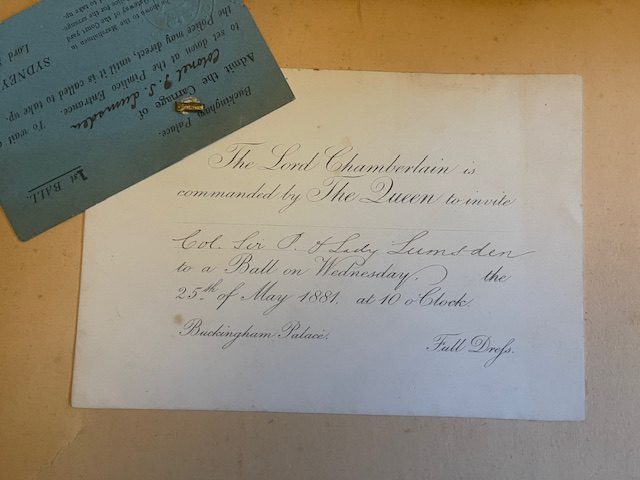 The Lord Chamberlain is
commanded by The Queen to invite
Col. Sir P. & Lady Lumsden
to a Ball on Wednesday, the
25th of May 1881, at 10 o'Clock.
Buckingham Palace.
Full Dreſs.
1st BALL.
Buckingham Palace.
Admit the Carriage of
Colonel P. S. Lumsden
to set down at the Pimlico Entrance. To wait
the Police may direct, until it is called to take up.
SYDNEY
Lord